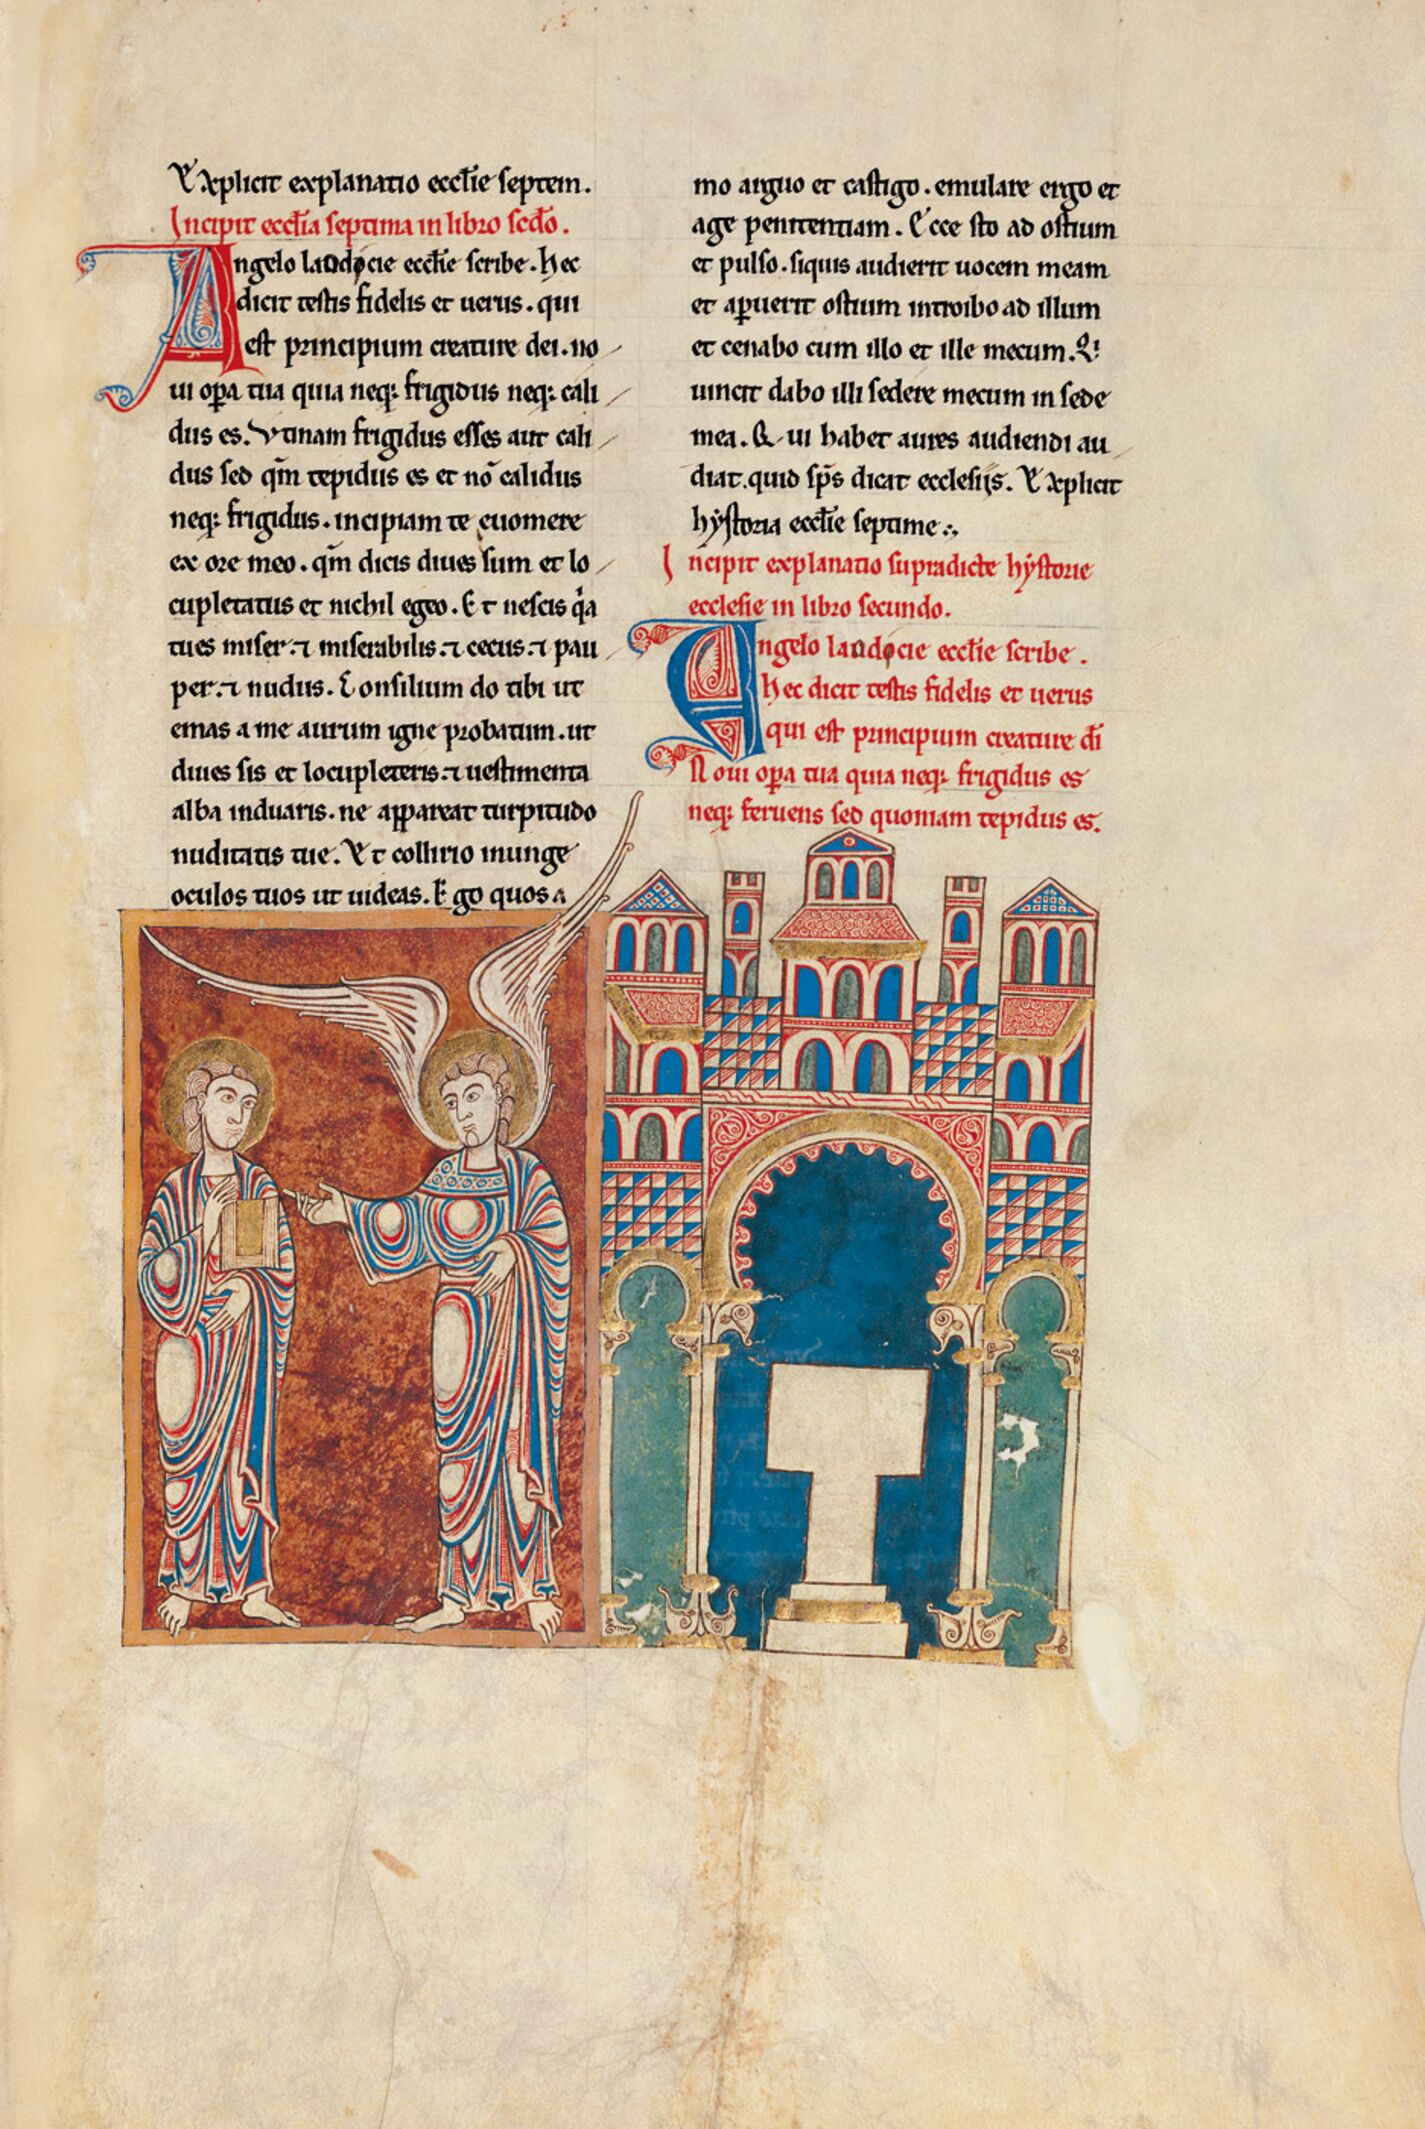 Explicit explanatio eccl̅ie septem.
Incipit eccl̅ia septima in libro scd̅o.
Angelo laodocie eccl̅ie scribe. hec
dicit testis fidelis et uerus. qui
est principium creature dei. no
ui op̲a tua quia neq: frigidus neq: cali
dus es. Vtinam frigidus esses aut cali
dus sed qm̅ tepidus es et no̅ calidus
neq: frigidus. incipiam te euomere
ex ore meo. qm̅ dicis diues sum et lo
cupletatus et nichil egeo. Et nescis qͥa
tu es miser. ⁊ miserabilis. ⁊ cecus. ⁊ pau
per. ⁊ nudus. Consilium do tibi ut
emas a me aurum igne probatum. ut
diues sis et locupleteris. ⁊ uestimenta
alba induaris. ne appareat turpitudo
nuditatis tue. Et collirio inunge
oculos tuos ut uideas. Ego quos a
mo arguo et castigo. emulare ergo et
age penitentiam. Ecce sto ad ostium
et pulso. siquis audierit uocem meam
et ap̲uerit ostium introibo ad illum
et cenabo cum illo et ille mecum. Qͥ
uincit dabo illi sedere mecum in sede
mea. Qui habet aures audiendi au
diat. quid sp̅s dicat ecclesijs. Explicit
hystoria eccl̅ie septime
Incipit explanatio supradicte hystorie
ecclesie in libro secundo.
Angelo laodocie eccl̅ie scribe.
hec dicit testis fidelis et uerus
qui est principium creature di̅
Noui op̲a tua quia neq: frigidus es
neq: feruens sed quoniam tepidus es.